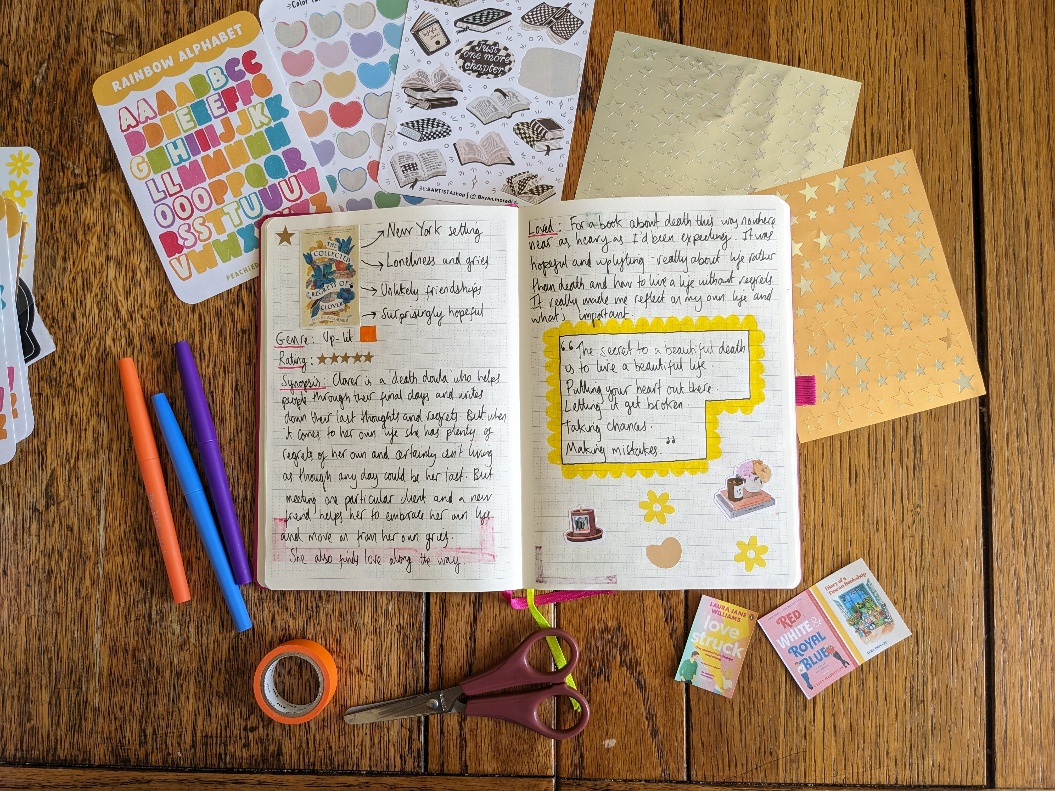 RAINBOW ALPHABET
AAAAABBCC
Just
one more
chapter
New York setting
THE
COLLECTED
REGRETS OF
CLOVER
Loneliness and grief
Unlikely friendships
Surprisingly hopeful
Genre: Up-lit
Rating:
Synopsis: Clover is a death doula who helps
people through their final days and writes
down their last thoughts and regrets. But when
it comes to her own life she has plenty of
regrets of her own and certainly isn't living
as though any day could be her last. But
meeting one particular client and a new
friend helps her to embrace her own life
and move on from her own grief.
She also finds love along the way
Loved: For a book about death this was nowhere
near as heavy as I'd been expecting. It was
hopeful and uplifting - really about life rather
than death and how to live a life without regrets.
It really made me reflect on my own life and
what's important.
"The secret to a beautiful death
is to live a beautiful life.
Putting your heart out there.
Letting it get broken.
taking chances.
Making mistakes."
LAURA JANE
WILLIAMS
love
struck
RED
WHITE &
ROYAL
BLUE
Diary of a
Bookshop